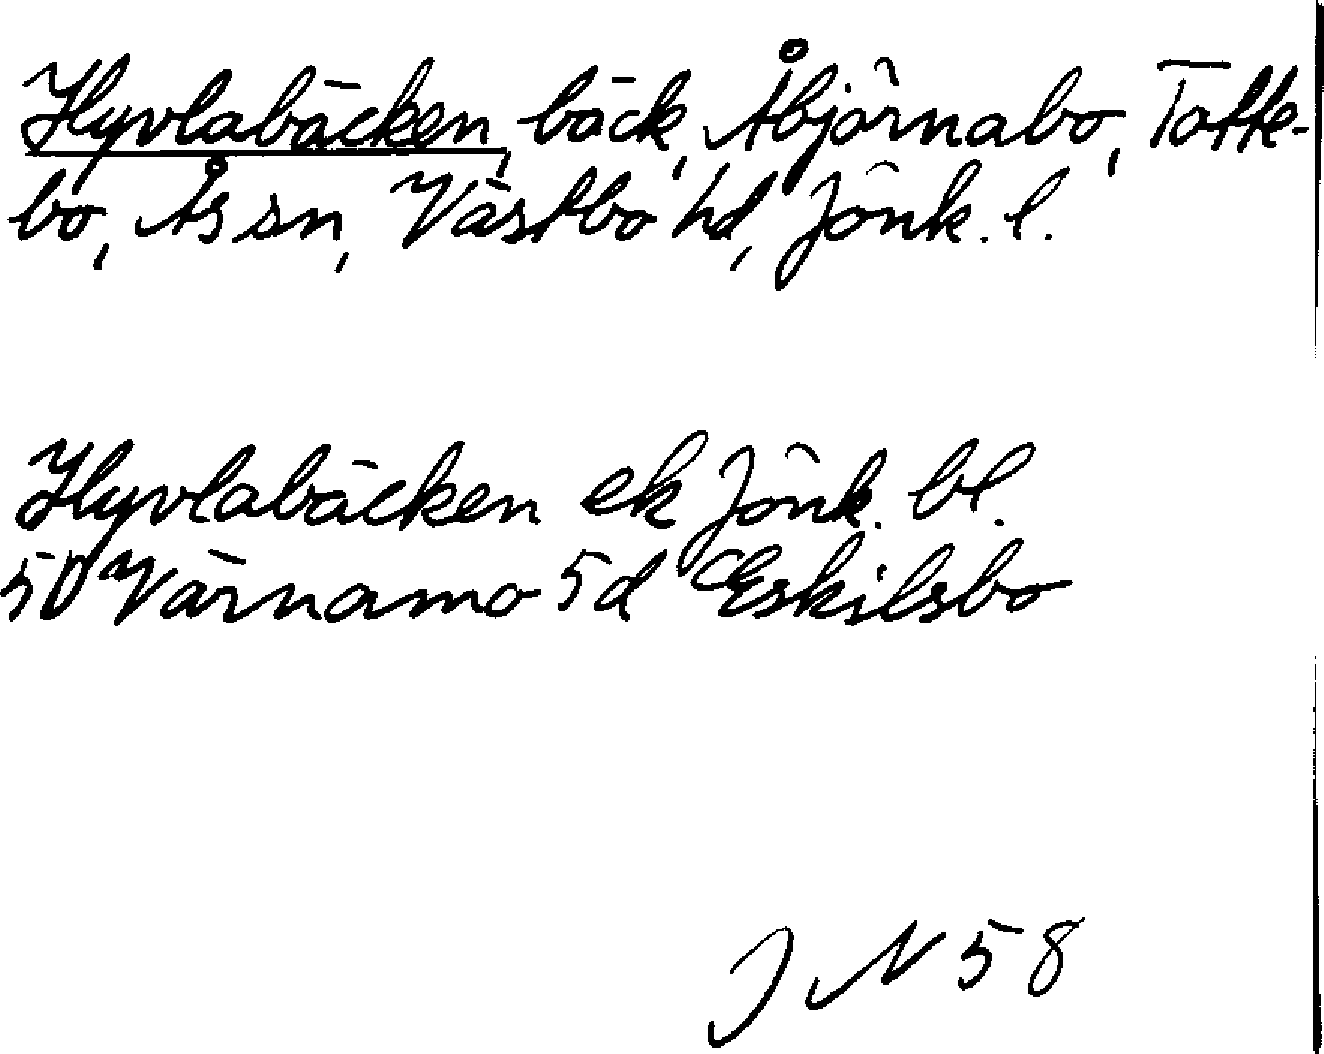 Hyvlabäcken, bäck, Åbjörnabo, Tofte-
bo, Ås sn, Västbo hd, Jönk. l.
Hyvlabäcken ek Jönk. bl.
50 Värnamo 5d Eskilsbo
J N 58